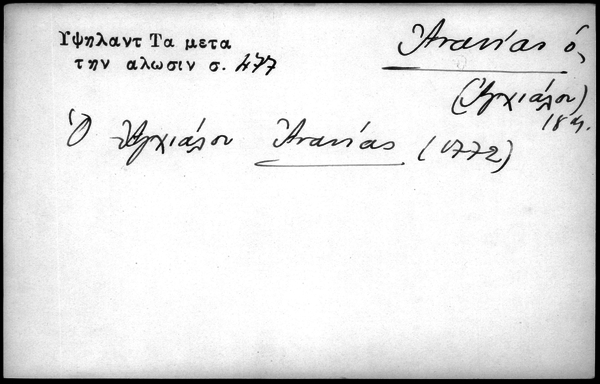 Υψηλαντ Τα μετα
την αλωσιν σ. 477
Ἀνανίας ὁ,
(Ἀγχιάλου)
18 αἰ.
Ὁ Ἀγχιάλου Ἀνανίας (1772)